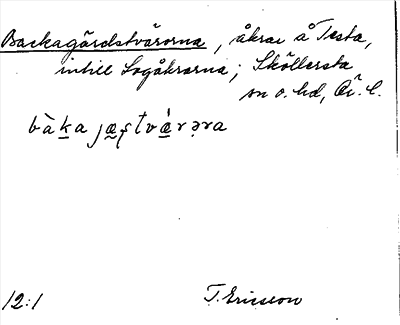 Backagärdstvärorna, åkrar å Testa,
intill Logåkrarna; Sköllersta
sn o. hd, Ör. l.
bàka jæʂtvǽrəra
12:1 T. Ericsson